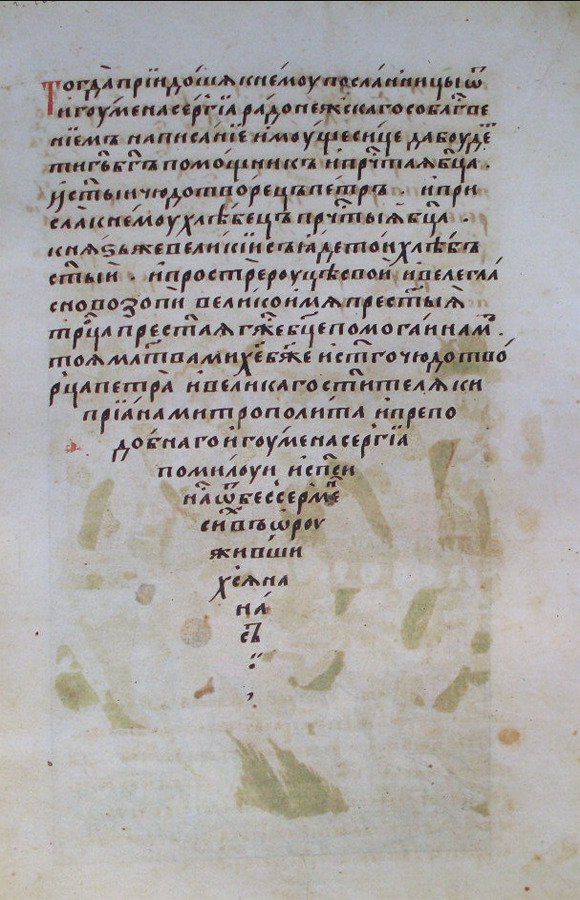 Тогда̀прїидо́шѧкнемоупосла́нницыѿ
игоу́менасергїѧрадонежскагособлг҃ве
нїемъ написанїе имоущесице дабоудⷷе
тигн҃ебг҃ъпомощникъ ипрⷱ҇таѧбц҃а .
ист҃ыичюдотворецъпетръ . ипри
слакнемоухлѣбецъ прⷱ҇тыѧбц҃а .
кнѧѕьжевеликїисъꙗ̀детоихлѣбъ
ст҃ый . ипрострероуцѣсвои ивелегла
сновозопѝ великоимѧпрест҃ыѧ
трⷪ҇цапрест҃аѧгж҃ебц҃епомогаинамъ .
тоѧмлт҃вамих҃ебж҃е ист҃гочюдотво́
рцапетра̀ ивеликагост҃ителѧки
прїанамитрополита ипрепо
добнагоигоу́менасергїа
помилоуи испⷭ҇и
на̀ѿбессермⷩ҇е
сиⷯвъѡроу
живши
хсѧна
на́
съ